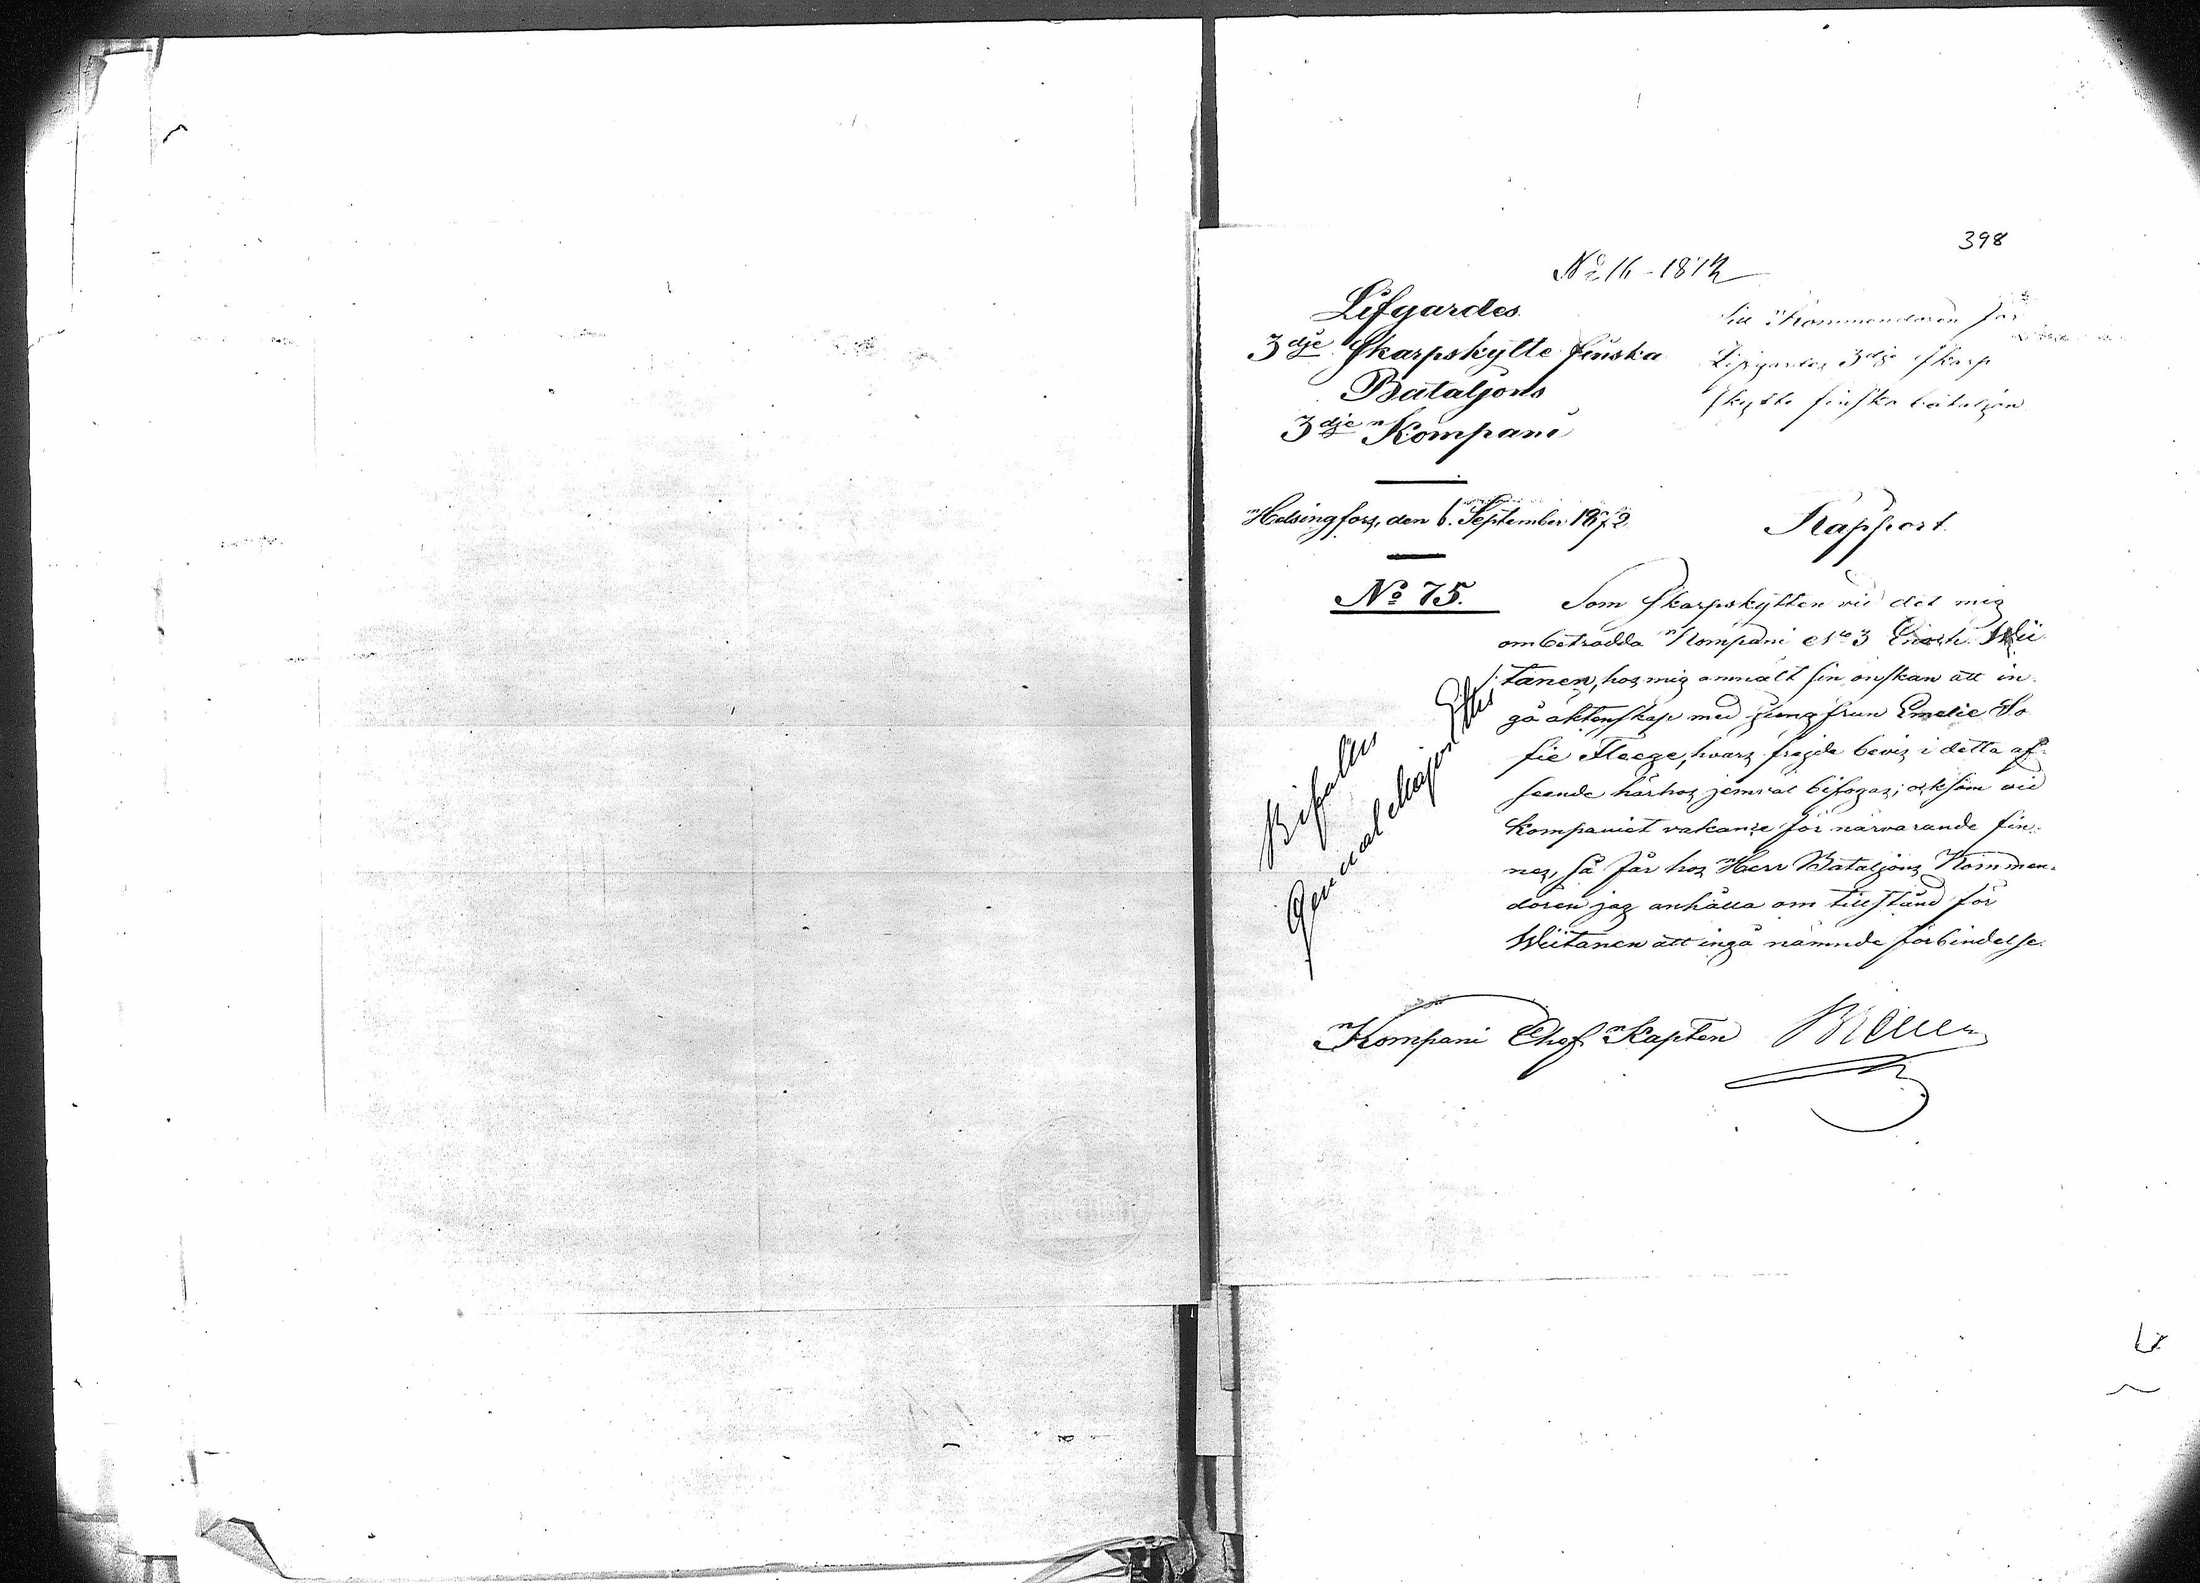 398
No 16 - 1872
Lifgardes
3dje Skarpskytte finska
Bataljons
3dje Kompani
Till Kommendören för
Lifgardes 3dje Skarp
skytte finska bataljon
Helsingfors, den 6. September 1872.
Rapport.
No 75.
Som Skarpskytten vid det mig
ombetrodda Kompani No 3 Enoch Wii
tanen, hos mig anmält sin önskan att in-
gå äktenskap med jungfrun Emelie So
fie Fleege, hvars frejde bevis i detta af-
seende härhos jemväl bifogas; och som vid
Kompaniet vakance för närvarande fin-
nes, så får hos Herr Bataljons Kommen-
dören jag anhålla om tillstånd för
Wiitanen att ingå nämnde förbindelse.
Bifalles
General Major
Kompani Chef Kapten